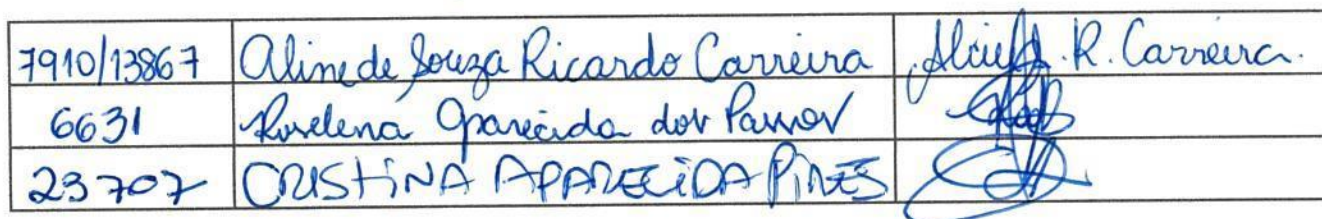 7910/13867 Aline de Souza Ricardo Carreira R. Carreira.
6631 Roselena Aparecida dos Passos
23707 CRISTINA APARECIDA PIRES